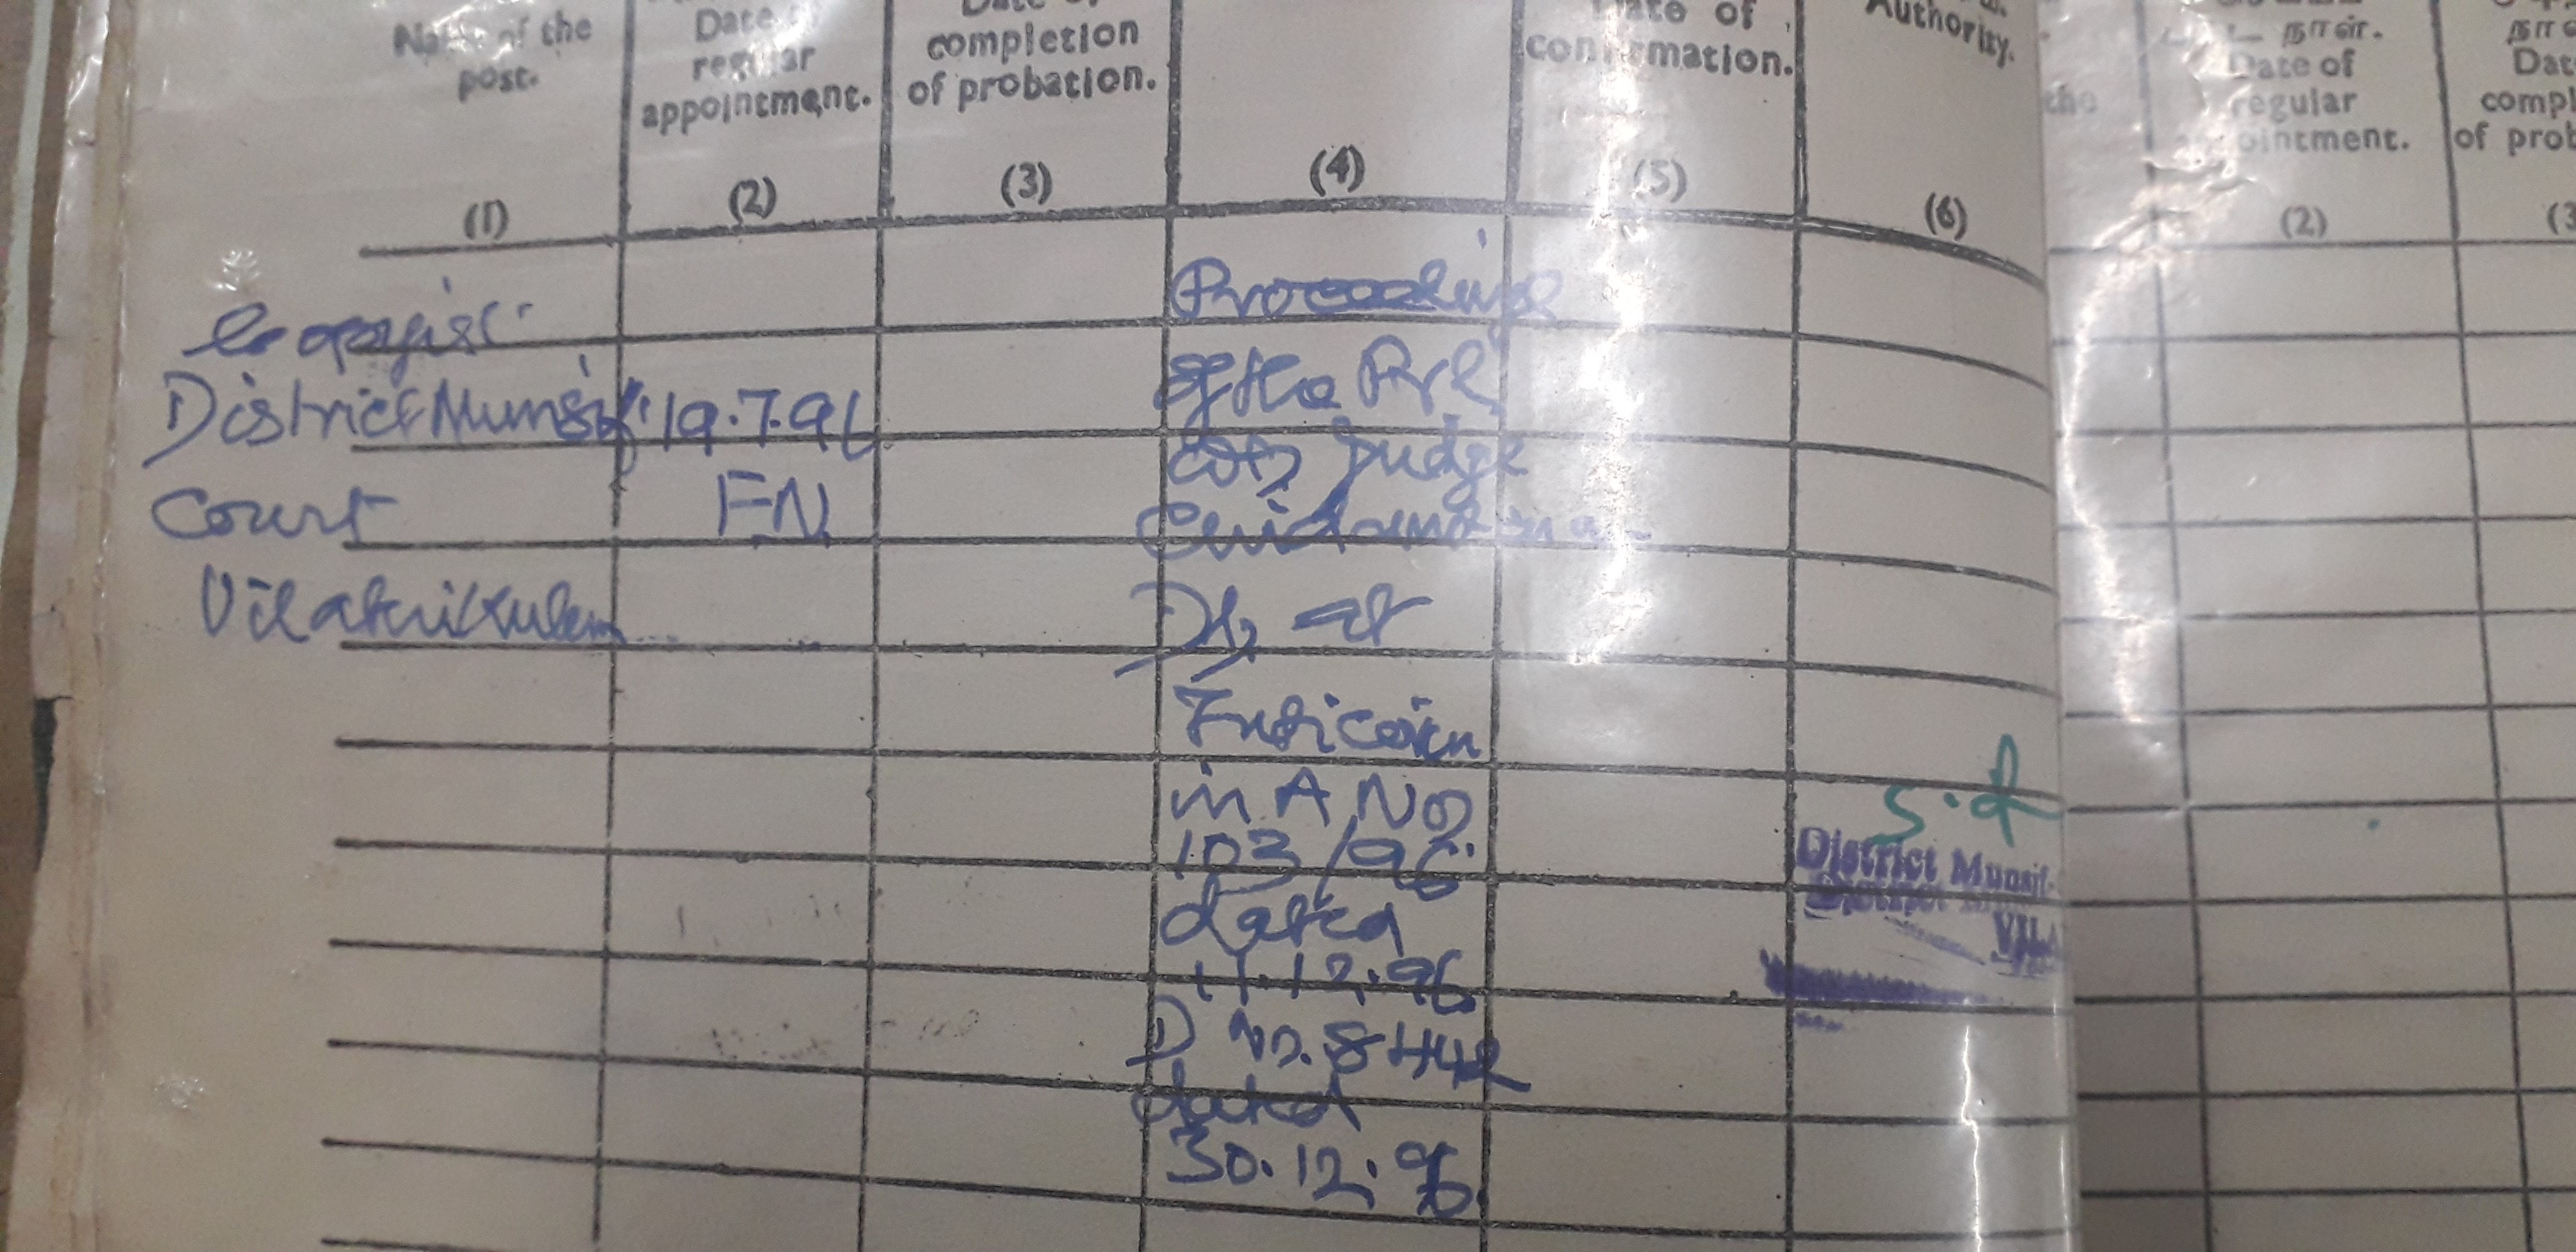 Name of the post.
Date of regular appointment.
Date of completion of probation.
Date of confirmation.
Authority.
(1) (2) (3) (4) (5) (6)
Copyist
District Munsif
Court
Vilathikulam
19.7.96
F.N.
Proceedings
of the Prl
Judge
at
Tuticorin
in A No
103/96
dated
11.12.96
D No. 8442
dated
30.12.96
District Munsif
நாள்.
the
Date of
regular
ointment.
(2)
Dat
compl
of prob
(3